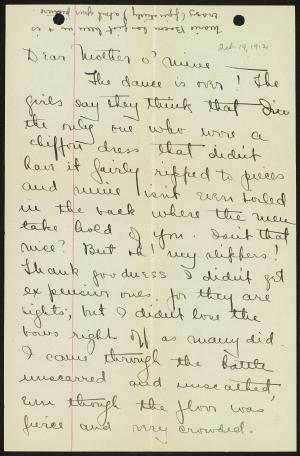 Marie Bacon has just been in + is
crazy
about your picture
Feb 19, 1912
Dear Mother o' mine
The dance is over! The
girls say they think that I'm
the only one who wore a
chiffon dress that didn't
have it fairly ripped to pieces
and mine isn't even soiled
in the back where the men
take hold of you. Isn't that
nice? But oh! my slippers!
Thank goodness I didn't get
expensive ones, for they are
sights; but I didn't lose the
bows right off as many did.
I came through the battle
unscarred and unscathed,
even though the floor was
fierce and very crowded.